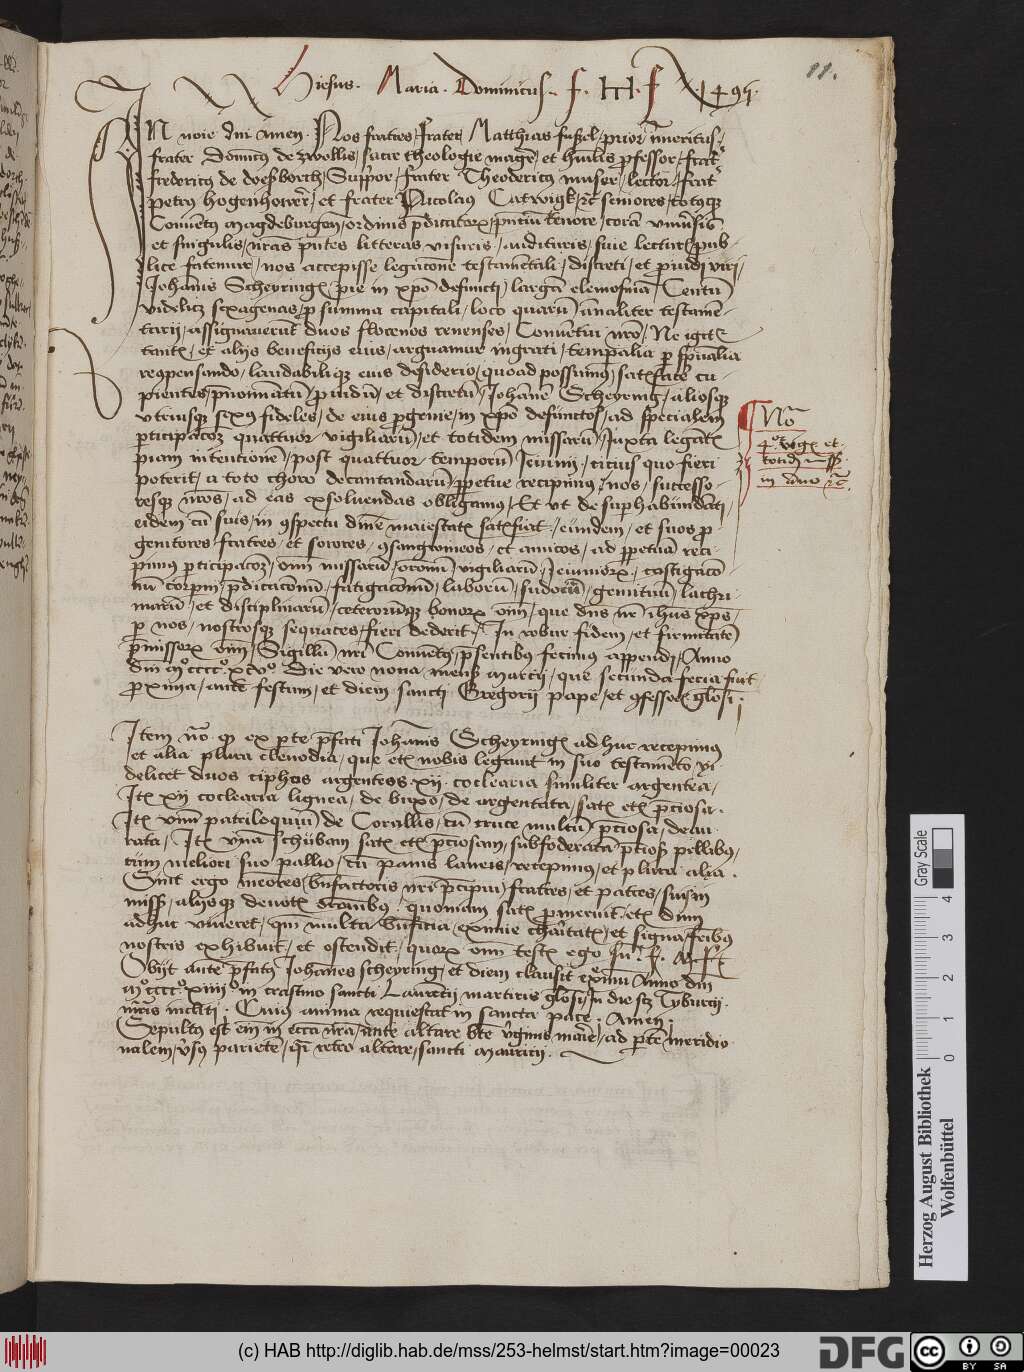 Hiesus. Maria. Dominicus. f. H. f 1495.
11.
IN noie dni Amen. Nos fratres, frater Matthias fussel, prior immeritus,
frater Dominicus de zwollis, sacre theologie magr, et humilis pfessor, frater
fredericus de doeßborch, Supprior, frater Theodericus muser, lector, frater
petrus hogenhower, et frater Nicolaus Catwigk, rc seniores, totusque
Conuetus magdeburgen, ordinis pdicatorx, pntium tenore, coram vniuersis
et singulis, nras pntes litteras visuris, audituris, siue lecturis, pub-
lice fatemur, nos accepisse legacione testamentali, discreti, et prouidi viri,
Johanis Scheyringk, pie in xpo defuncti, larga elemosina, Centu
videlicz sexagenas, p summa capitali, loco quaru annaliter testamen-
tarij, assignauerut duos florenos renenses, Conuentui nro, Ne igitur
tantis, et alijs beneficijs eius, arguamur ingrati, temporalia per spualia
recpensando, laudabilique eius desiderio, quoad possumus, satisfacere cu-
pientes, pnominatu prouidu, et discretu, Johanne Scheyring, aliosque
vtriusque sexus fideles, de eius progenie, in xpo defunctos, ad specialem
pticipacoem quattuor vigiliaru, et totidem missaru, Juxta legantis
piam intentione, post quattuor temporu Jeiunij, citius quo fieri
poterit, a toto choro decantandaru, ppetue recipimus, nos, successo-
resque nros, ad eas exsoluendas obligamus, Et vt de suphabundanti,
eidem cu suis, in gspectu diuine maiestatis satisfiat, eundem, et suos pro-
genitores, fratres, et sorores, gsanguineos, et amicos, ad ppetua reci-
pimus pticipacoem, omnium missaru, orationu, vigiliaru, Jeiuniorx, castigacio-
nu corpru, pdicationu, fatigacionu, laboru, sudoru, gemituu, lachri-
maru, et disciplinaru, ceterorumque bonorx omniu, que dns nr ihus xps,
p nos, nostrosque sequaces, fieri dederit, In robur fidem, et firmitate
pmissorx omniu, Sigillu nri Conuetus, psentibus fecimus appendi, Anno
dni Mo cccco xcvo, Die vero nona, mensis marcij, que secunda feria fuit
pxima, ante festum, et diem sancti Gregorij pape, et gfessoris glosi.
No
4or vigx et
totidem miss
in anno rc.
Item no qp ex pte pfati Johanis Scheyringk, ad huc recepimus
et alia plura clenodia, que etiam nobis legauit in suo testameto vi-
delicet duos ciphos argenteos, xij coclearia similiter argentea,
Itx xij coclearia lignea, de buxo, de argentata, satx etx pciosa.
Itx vnu patriloquiu de Corallis, cu cruce multu pciosa, deau-
rata, Itx vna schubam satx etx pciosam, subfoderata pciosis pellibus,
cum meliori suo pallio, cu panis laneis, recepimus, et plura alia.
Sint ergo meores, benfactoris nri pcipui, fratres, et patres, suis in
missis, alijsque deuotx oronibus, quoniam satx pmeruit, etx dum
adhuc viueret, qui multa bnficia, eximie charitatx, et signa, fratribus
nostris exhibuit, et ostendit, quorx omniu testis ego sum, f.
Obijt ante pfatus Johanes scheyring, et diem clausit extremu Anno dni
Mo ccccxo xiiijo in crastino sancti Laurentij martiris glosi, in die sctor Tyburcij
mris incliti. Cuius anima requiescat in sancta pace. Amen.
Sepultus est em in ecca nra, ante altare bte virginis marie, ad pte meridio-
nalem, versus pariete, qui retro altare, sancti Mauritij.
Gray Scale
0 1 2 3 4
Herzog August Bibliothek
Wolfenbüttel
(c) HAB http://diglib.hab.de/mss/253-helmst/start.htm?image=00023
DFG
cc BY SA